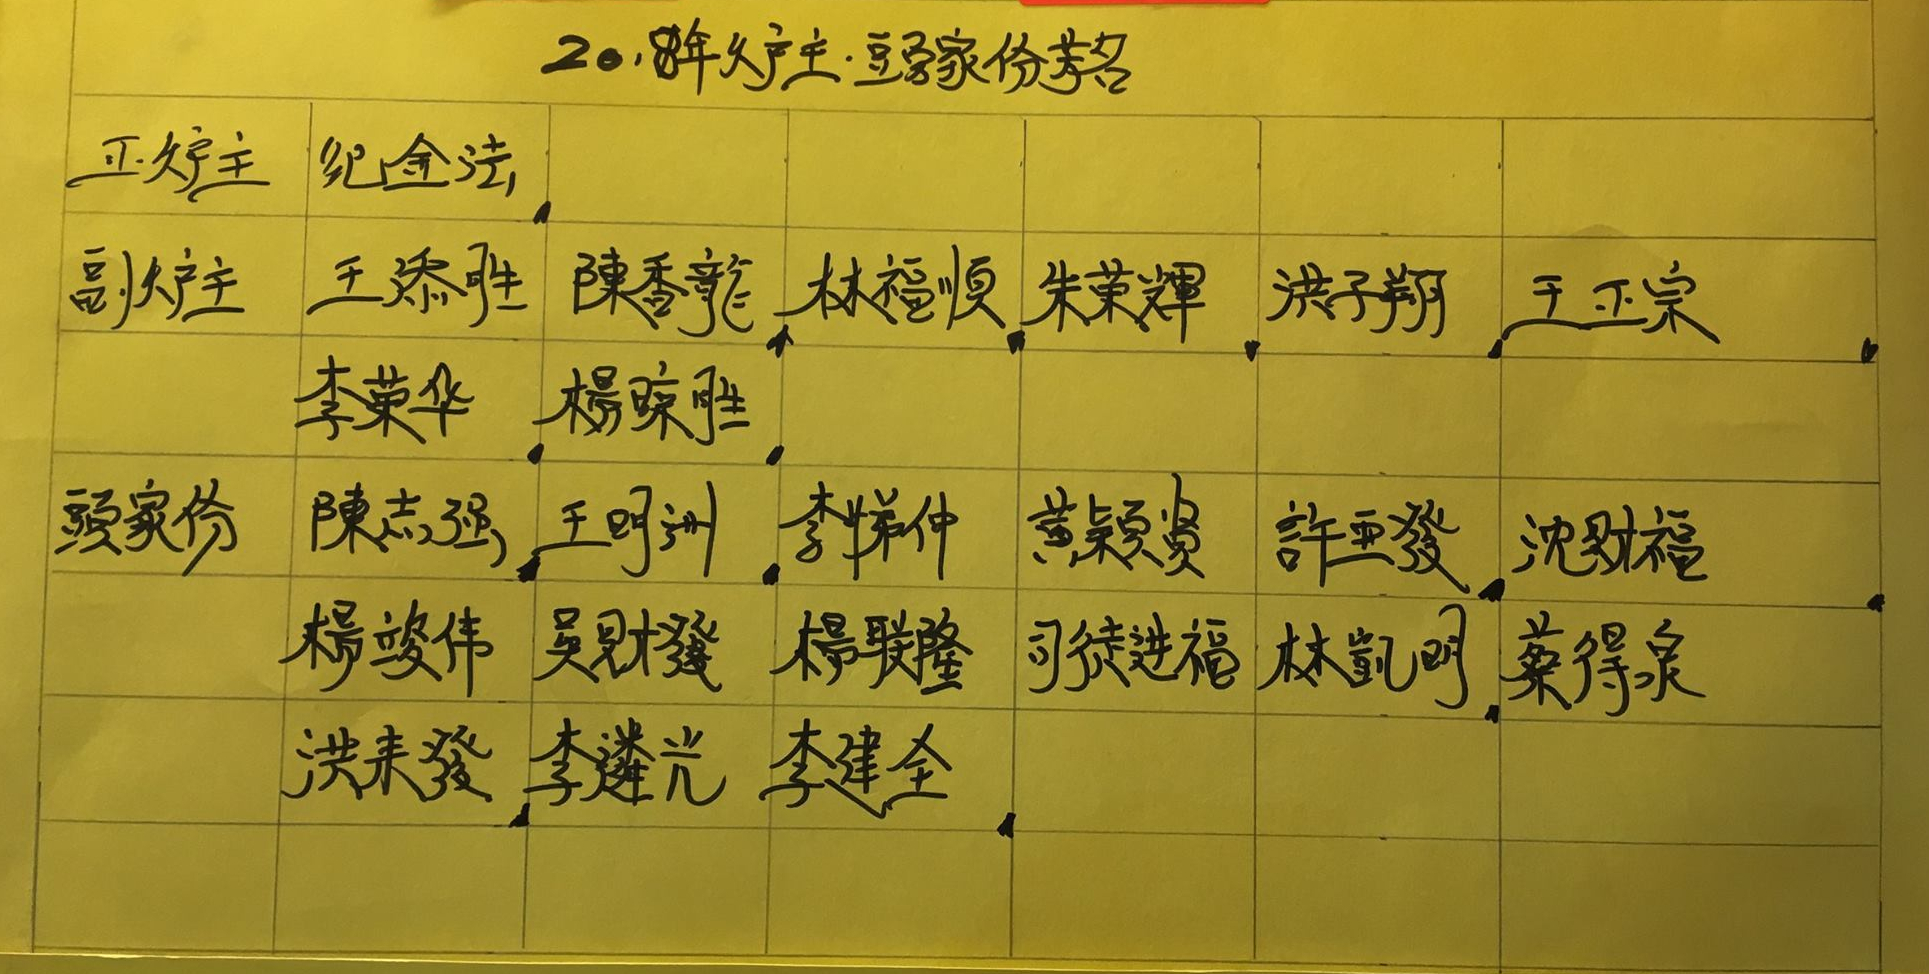 2018年炉主.頭家份芳名
正炉主 纪金法
副炉主 王添胜 陳香龍 林福順 朱荣輝 洪子翔 王正宗
李荣华 楊琼胜
頭家份 陳志强 王明洲 李悌仲 黄穎贤 許亚發 沈财福
楊竣伟 吴财發 楊联隆 司徒进福 林凱明 蔡得泉
洪来發 李遴光 李建全